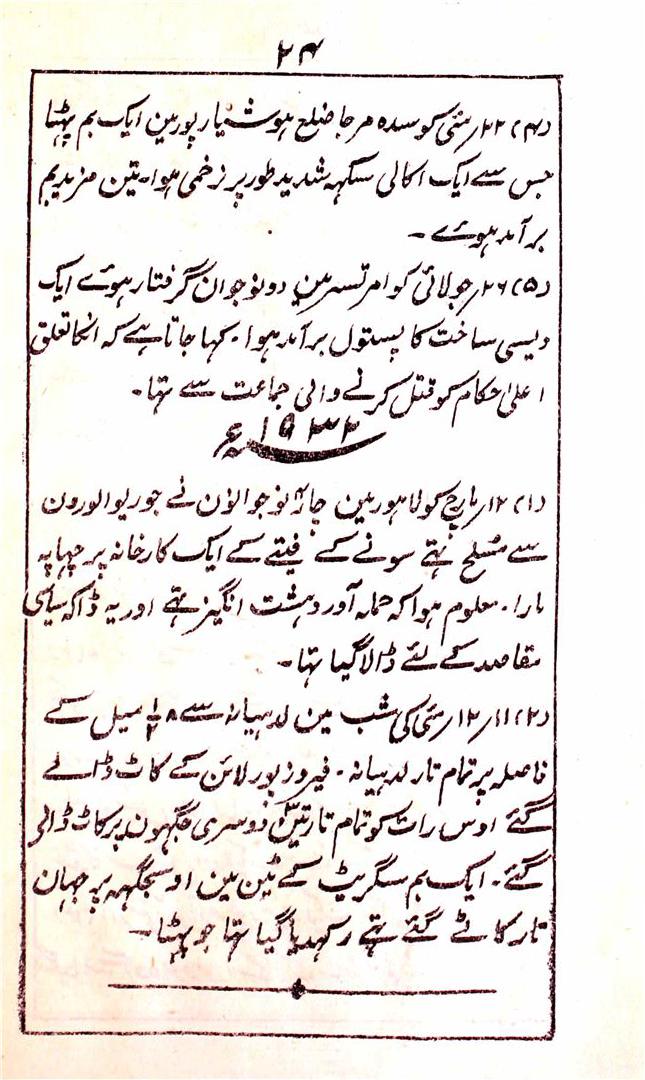 ۲۴
(۴) ۲۲؍مئی کو سدہ مرجا ضلع ہوشیارپور مین ایک بم پھٹا
جس سے ایک اکالی سکھہ شدید طور پر زخمی ہوا۔ تین مزید بم
برآمد ہوے ۔
(۵) ۲۶؍جولائی کو امرتسر مین دو نوجوان گرفتار ہوے ایک
دیسی ساخت کا پستول برآمد ہوا ۔ کہا جاتا ہے کہ انکا تعلق
اعلیٰ حکام کو قتل کرنے والی جماعت سے تھا۔
۱۹۳۲ء
(۱) ۱۲؍مارچ کو لاہور مین چار نوجوانون نے جو ریوالورون
سے مسلح تھے سونے کے فیتے کے ایک کارخانہ پر چھاپہ
مارا ۔ معلوم ہوا کہ حملہ آور دہشت انگیز تھے اور یہ ڈاکہ سیاسی
مقاصد کے لئے ڈالا گیا تھا۔
(۲) ۱۱؍۱۲؍مئی کی شب مین لدہیانہ سے ۸ ۱/۲ میل کے
فاصلہ پر تمام تار لدہیانہ ۔ فیروزپور لائن کے کاٹ ڈالے
گئے اوس رات کو تمام تار تین دوسری جگہون پر کاٹ ڈالی
گئے ۔ ایک بم سگریٹ کے ٹین مین اوسجگہہ پر جہان
تار کاٹے گئے تھے رکھدیا گیا تھا جو پھٹا ۔